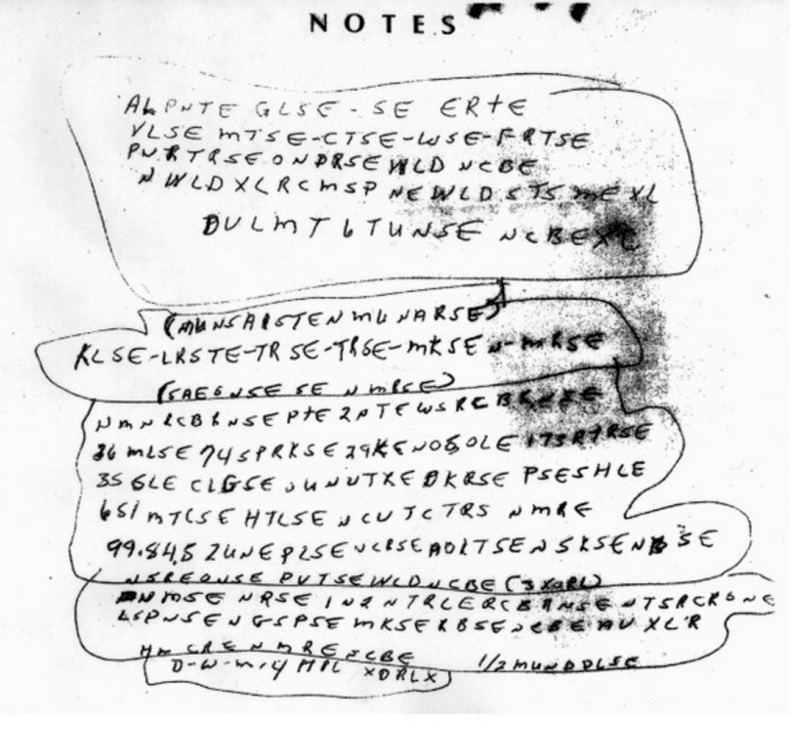 NOTES
ALPNTE GLSE - SE ERTE
VLSE MTSE-CTSE-WSE-FRTSE
PNRTRSE ONDRSE WLD NCBE
NWLD XLRCMSP NEWLD STS ME XL
DULMT 6 TUNSE NCBE XC
(MUNSAISTEN MU NARSE)
KLSE-LRSTE-TRSE-TRSE-MKSE N-MRSE
(SAE6NSE SE NMRSE)
NMNRCBRNSE PTE 2PTE WSRCBRNSE
36 MLSE 74 SPRKSE 29KENOSOLE 173RTRSE
35 GLE CLGSE UUNUTXE DKRSE PSESHLE
651 MTCSE HTLSE NCUTCTRS NMRE
99.84.5 ZUNE PLSE NCRSE AOLTSE NSKSE NBSE
NSREONSE PUTSE WLD NCBE (3 XORL)
NMSE NRSE IN2 NTRLE RCBRNSE NTSRCRONE
LSPNSE NGSPSE MKSE RBSE NCBE AU XLR
HM CRE NMRE NCBE 1/2 MUNDDLSE
D-W-M-4 MIL XDRLX